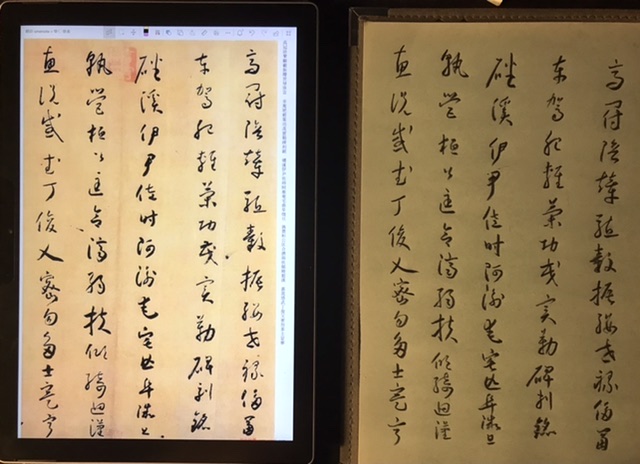 高冠陪輦驅轂振纓世祿侈富
車駕肥輕策功茂實勒碑刻銘
磻溪伊尹佐時阿衡奄宅曲阜微旦
孰營桓公匡合濟弱扶傾綺迴漢
惠說感武丁俊乂密勿多士寔寧
高冠陪輦驅轂振纓世祿侈富
車駕肥輕策功茂實勒碑刻銘
磻溪伊尹佐時阿衡奄宅曲阜微旦
孰營桓公匡合濟弱扶傾綺迴漢
惠說感武丁俊乂密勿多士寔寧